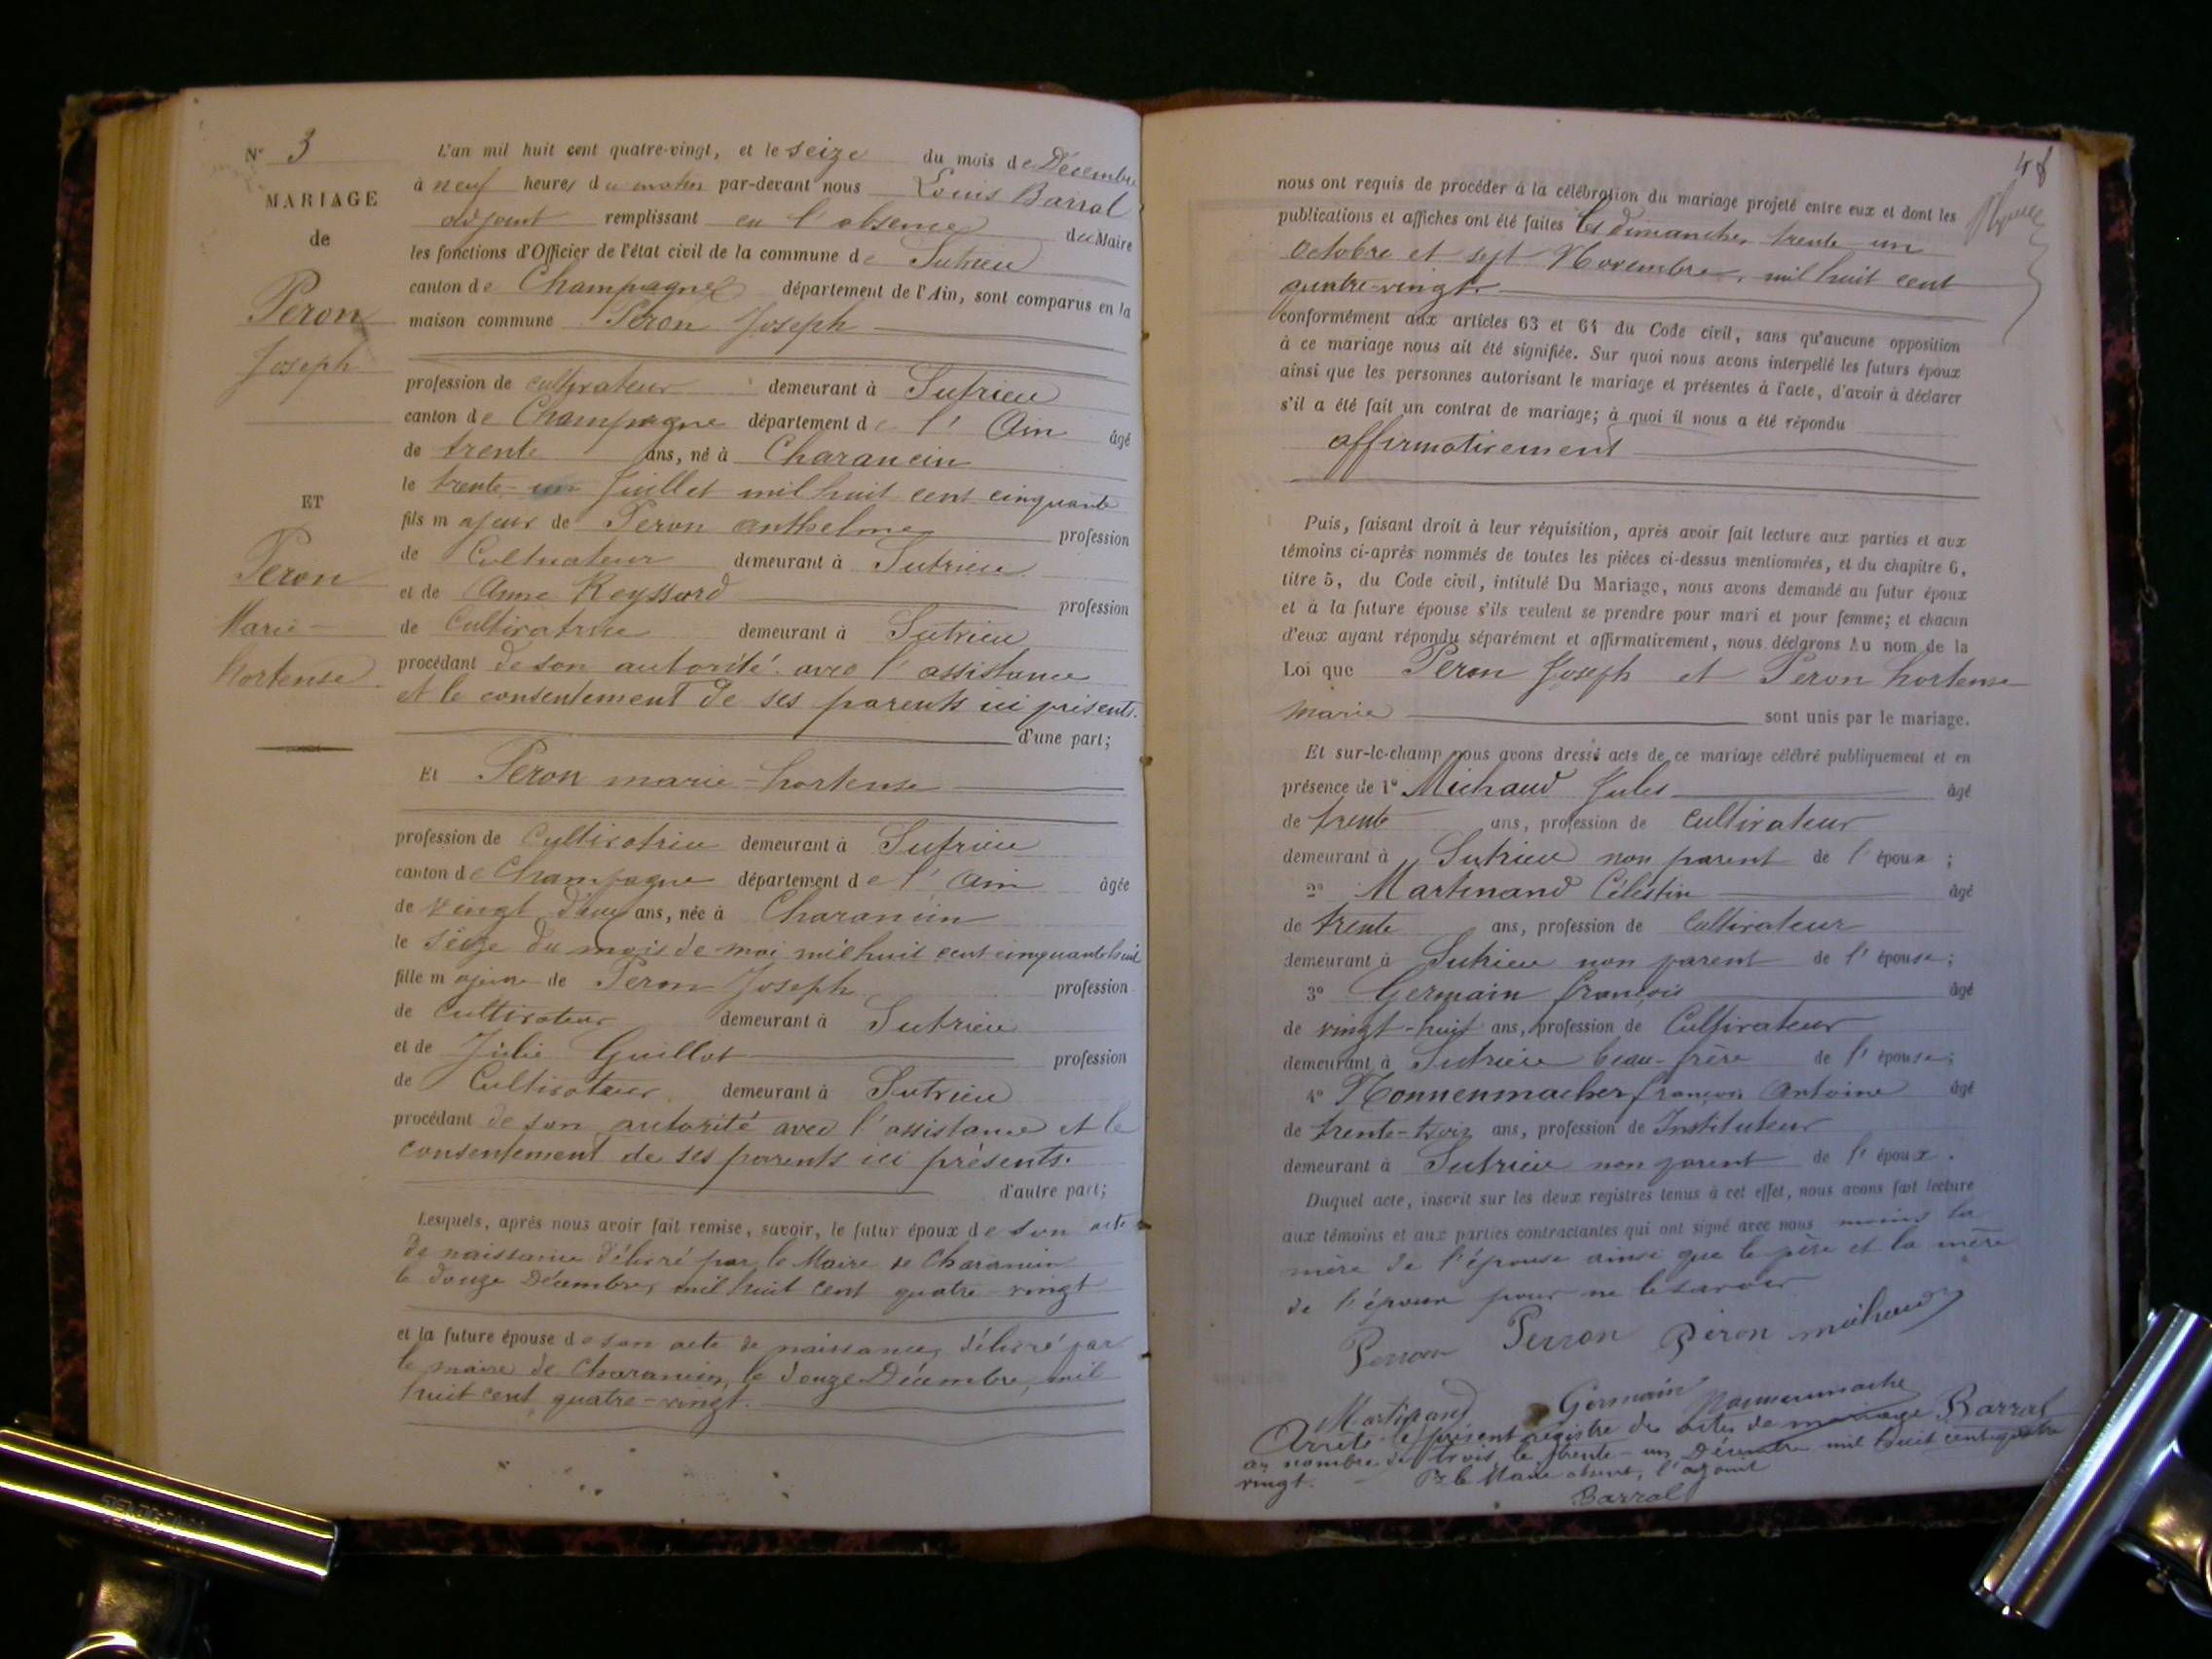 N° 3
MARIAGE
de
Peron
Joseph
ET
Peron
Marie
hortense
L'an mil huit cent quatre-vingt, et le seize du mois de Décembre
à neuf heures du matin par-devant nous Louis Barral
adjoint remplissant en l'absence du Maire
les fonctions d'Officier de l'état civil de la commune de Sutrieu
canton de Champagne département de l'Ain, sont comparus en la
maison commune Peron Joseph
profession de cultivateur demeurant à Sutrieu
canton de Champagne département de l'Ain âgé
de trente ans, né à Charancin
le trente-un Juillet mil huit cent cinquante
fils majeur de Peron anthelme profession
de Cultivateur demeurant à Sutrieu
et de Anne Reyssard profession
de Cultivatrice demeurant à Sutrieu
procédant de son autorité avec l'assistance
et le consentement de ses parents ici présents.
d'une part;
Et Peron marie-hortense
profession de Cultivatrice demeurant à Sutrieu
canton de Champagne département de l'Ain âgée
de vingt deux ans, née à Charancin
le seize du mois de mai mil huit cent cinquante huit
fille majeure de Peron Joseph profession
de Cultivateur demeurant à Sutrieu
et de Julie Guillot profession
de demeurant à Sutrieu
procédant de son autorité avec l'assistance et le
consentement de ses parents ici présents.
d'autre part;
Lesquels, après nous avoir fait remise, savoir, le futur époux de son acte
de naissance délivré par le Maire de Charancin
le douze Décembre, mil huit cent quatre-vingt
et la future épouse de son acte de naissance, délivré par
le maire de Charancin, le douze Décembre, mil
huit cent quatre-vingt.
48
nous ont requis de procéder à la célébration du mariage projeté entre eux et dont les
publications et affiches ont été faites les dimanches trente un
Octobre et sept Novembre, mil huit cent
quatre-vingt
conformément aux articles 63 et 64 du Code civil, sans qu'aucune opposition
à ce mariage nous ait été signifiée. Sur quoi nous avons interpellé les futurs époux
ainsi que les personnes autorisant le mariage et présentes à l'acte, d'avoir à déclarer
s'il a été fait un contrat de mariage; à quoi il nous a été répondu
affirmativement
Puis, faisant droit à leur réquisition, après avoir fait lecture aux parties et aux
témoins ci-après nommés de toutes les pièces ci-dessus mentionnées, et du chapitre 6,
titre 5, du Code civil, intitulé Du Mariage, nous avons demandé au futur époux
et à la future épouse s'ils veulent se prendre pour mari et pour femme; et chacun
d'eux ayant répondu séparément et affirmativement, nous déclarons Au nom de la
Loi que Peron Joseph et Peron hortense
Marie sont unis par le mariage.
Et sur-le-champ nous avons dressé acte de ce mariage célébré publiquement et en
présence de 1° Michaud Jules âgé
de trente ans, profession de Cultivateur
demeurant à Sutrieu non parent de l'époux;
2° Martinand Célestin âgé
de trente ans, profession de Cultivateur
demeurant à Sutrieu non parent de l'épouse;
3° Germain françois âgé
de vingt-huit ans, profession de Cultivateur
demeurant à Sutrieu beau-frère de l'épouse;
4° Nonnenmacher françois Antoine âgé
de trente-trois ans, profession de Instituteur
demeurant à Sutrieu non parent de l'époux.
Duquel acte, inscrit sur les deux registres tenus à cet effet, nous avons fait lecture
aux témoins et aux parties contractantes qui ont signé avec nous moins la
mère de l'épouse ainsi que le père et la mère
de l'époux pour ne le savoir
Perron Perron Péron michaud
Martinand Germain Nonnenmacher Barral
Arrêté le présent registre des actes de mariage
au nombre de trois, le trente-un Décembre mil huit cent quatre
vingt. Pr le Maire absent, l'adjoint
Barral